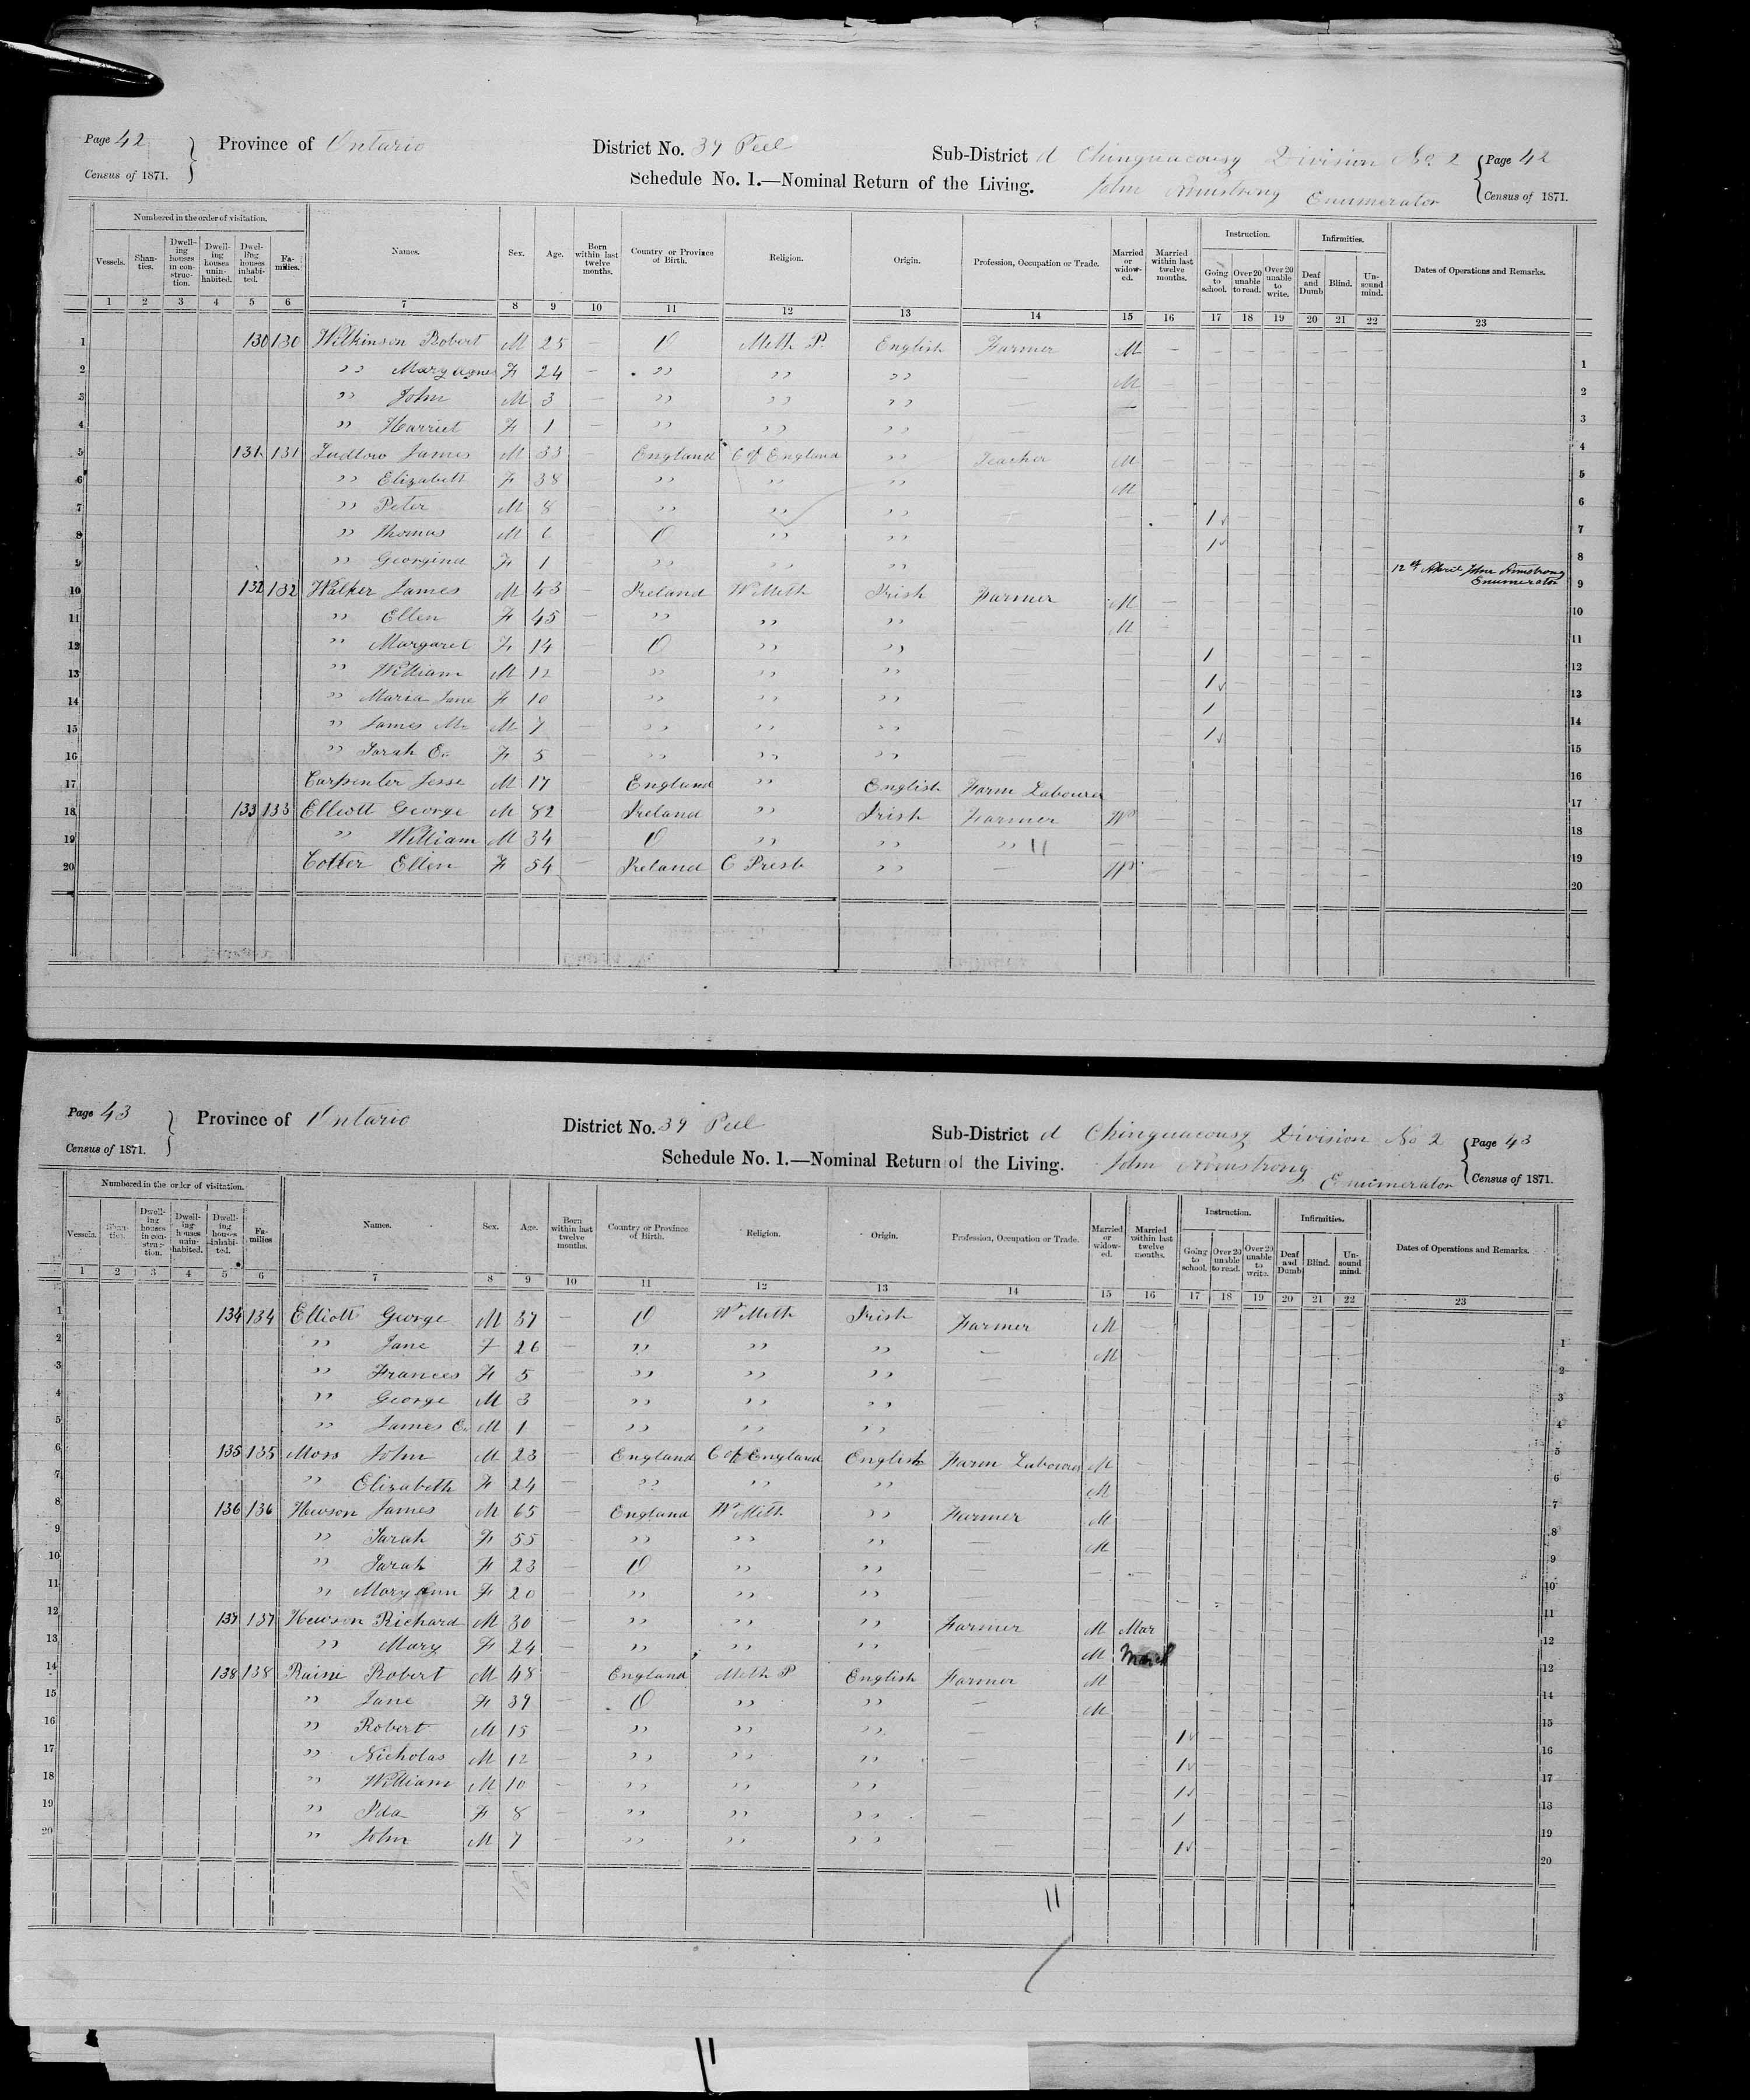 Page 42 Province of Ontario District No. 39 Peel Sub-District d Chinguacousy Division No. 2 Page 42
Census of 1871. Schedule No. 1.—Nominal Return of the Living. John Armstrong Enumerator Census of 1871.
Numbered in the order of visitation. Instruction. Infirmities.
Vessels. Shanties. Dwelling houses in construction. Dwelling houses uninhabited. Dwelling houses inhabited. Families. Names. Sex. Age. Born within last twelve months. Country or Province of Birth. Religion. Origin. Profession, Occupation or Trade. Married or widowed. Married within last twelve months. Going to school. Over 20 unable to read. Over 20 unable to write. Deaf and Dumb Blind. Unsound mind. Dates of Operations and Remarks.
1 2 3 4 5 6 7 8 9 10 11 12 13 14 15 16 17 18 19 20 21 22 23
1 130 130 Wilkinson Robert M 25 — O Meth P. English Farmer M — — — — — — — 1
2 ,, Mary Agnes F 24 — ,, ,, ,, — M — — — — — — — 2
3 ,, John M 3 — ,, ,, ,, — — — — — — — — — 3
4 ,, Harriet F 1 — ,, ,, ,, — — — — — — — — — 4
5 131 131 Ludlow James M 33 — England C of England ,, Teacher M — — — — — — — 5
6 ,, Elizabeth F 38 — ,, ,, ,, — M — — — — — — — 6
7 ,, Peter M 8 — ,, ,, ,, — — — 1 — — — — — 7
8 ,, Thomas M 6 — O ,, ,, — — — 1 — — — — — 8
9 ,, Georgina F 1 — ,, ,, ,, — — — — — — — — — 12th April John Armstrong Enumerator 9
10 132 132 Walker James M 43 — Ireland W Meth Irish Farmer M — — — — — — — 10
11 ,, Ellen F 45 — ,, ,, ,, — M — — — — — — — 11
12 ,, Margaret F 14 — O ,, ,, — — — 1 — — — — — 12
13 ,, William M 12 — ,, ,, ,, — — — 1 — — — — — 13
14 ,, Maria Jane F 10 — ,, ,, ,, — — — 1 — — — — — 14
15 ,, James M. M 7 — ,, ,, ,, — — — 1 — — — — — 15
16 ,, Sarah E. F 5 — ,, ,, ,, — — — — — — — — — 16
17 Carpenter Jesse M 17 — England ,, English Farm Labourer — — — — — — — — 17
18 133 133 Elliott George M 82 — Ireland ,, Irish Farmer W — — — — — — — 18
19 ,, William M 34 — O ,, ,, ,, — — — — — — — — 19
20 Cotter Ellen F 54 — Ireland C Presb ,, — W — — — — — — — 20
Page 43 Province of Ontario District No. 39 Peel Sub-District d Chinguacousy Division No 2 Page 43
Census of 1871. Schedule No. 1.—Nominal Return of the Living. John Armstrong Enumerator Census of 1871.
Numbered in the order of visitation. Instruction. Infirmities.
Vessels. Shanties. Dwelling houses in construction. Dwelling houses uninhabited. Dwelling houses inhabited. Families Names. Sex. Age. Born within last twelve months. Country or Province of Birth. Religion. Origin. Profession, Occupation or Trade. Married or widowed. Married within last twelve months. Going to school. Over 20 unable to read. Over 20 unable to write. Deaf and Dumb Blind. Unsound mind. Dates of Operations and Remarks.
1 2 3 4 5 6 7 8 9 10 11 12 13 14 15 16 17 18 19 20 21 22 23
1 134 134 Elliott George M 37 — O W Meth Irish Farmer M — — — — — — — 1
2 ,, Jane F 26 — ,, ,, ,, — M — — — — — — — 2
3 ,, Frances F 5 — ,, ,, ,, — — — — — — — — — 3
4 ,, George M 3 — ,, ,, ,, — — — — — — — — — 4
5 ,, James E. M 1 — ,, ,, ,, — — — — — — — — — 5
6 135 135 Moss John M 23 — England C of England English Farm Labourer M — — — — — — — 6
7 ,, Elizabeth F 24 — ,, ,, ,, — M — — — — — — — 7
8 136 136 Hewson James M 65 — England W Meth ,, Farmer M — — — — — — — 8
9 ,, Sarah F 55 — ,, ,, ,, — M — — — — — — — 9
10 ,, Sarah F 23 — O ,, ,, — — — — — — — — — 10
11 ,, Mary Ann F 20 — ,, ,, ,, — — — — — — — — — 11
12 137 137 Hewson Richard M 30 — ,, ,, ,, Farmer M Mar — — — — — — 12
13 ,, Mary F 24 — ,, ,, ,, — M March — — — — — — 12
14 138 138 Raine Robert M 48 — England Meth P English Farmer M — — — — — — — 14
15 ,, Jane F 39 — O ,, ,, — M — — — — — — — 15
16 ,, Robert M 15 — ,, ,, ,, — — — 1 — — — — — 16
17 ,, Nicholas M 12 — ,, ,, ,, — — — 1 — — — — — 17
18 ,, William M 10 — ,, ,, ,, — — — 1 — — — — — 18
19 ,, Ida F 8 — ,, ,, ,, — — — 1 — — — — — 19
20 ,, John M 7 — ,, ,, ,, — — — 1 — — — — — 20